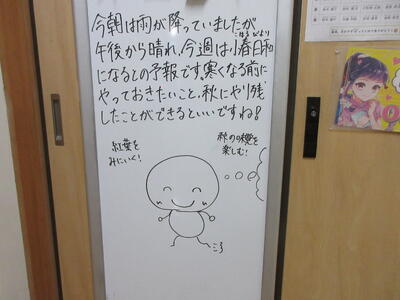 今朝は雨が降っていましたが
午後から晴れ、今週は小春日和
こはるびより
になるとの予報です。寒くなる前に
やっておきたいこと、秋にやり残
したことができるといいですね!
紅葉を
みにいく!
秋の味覚を
楽しむ!